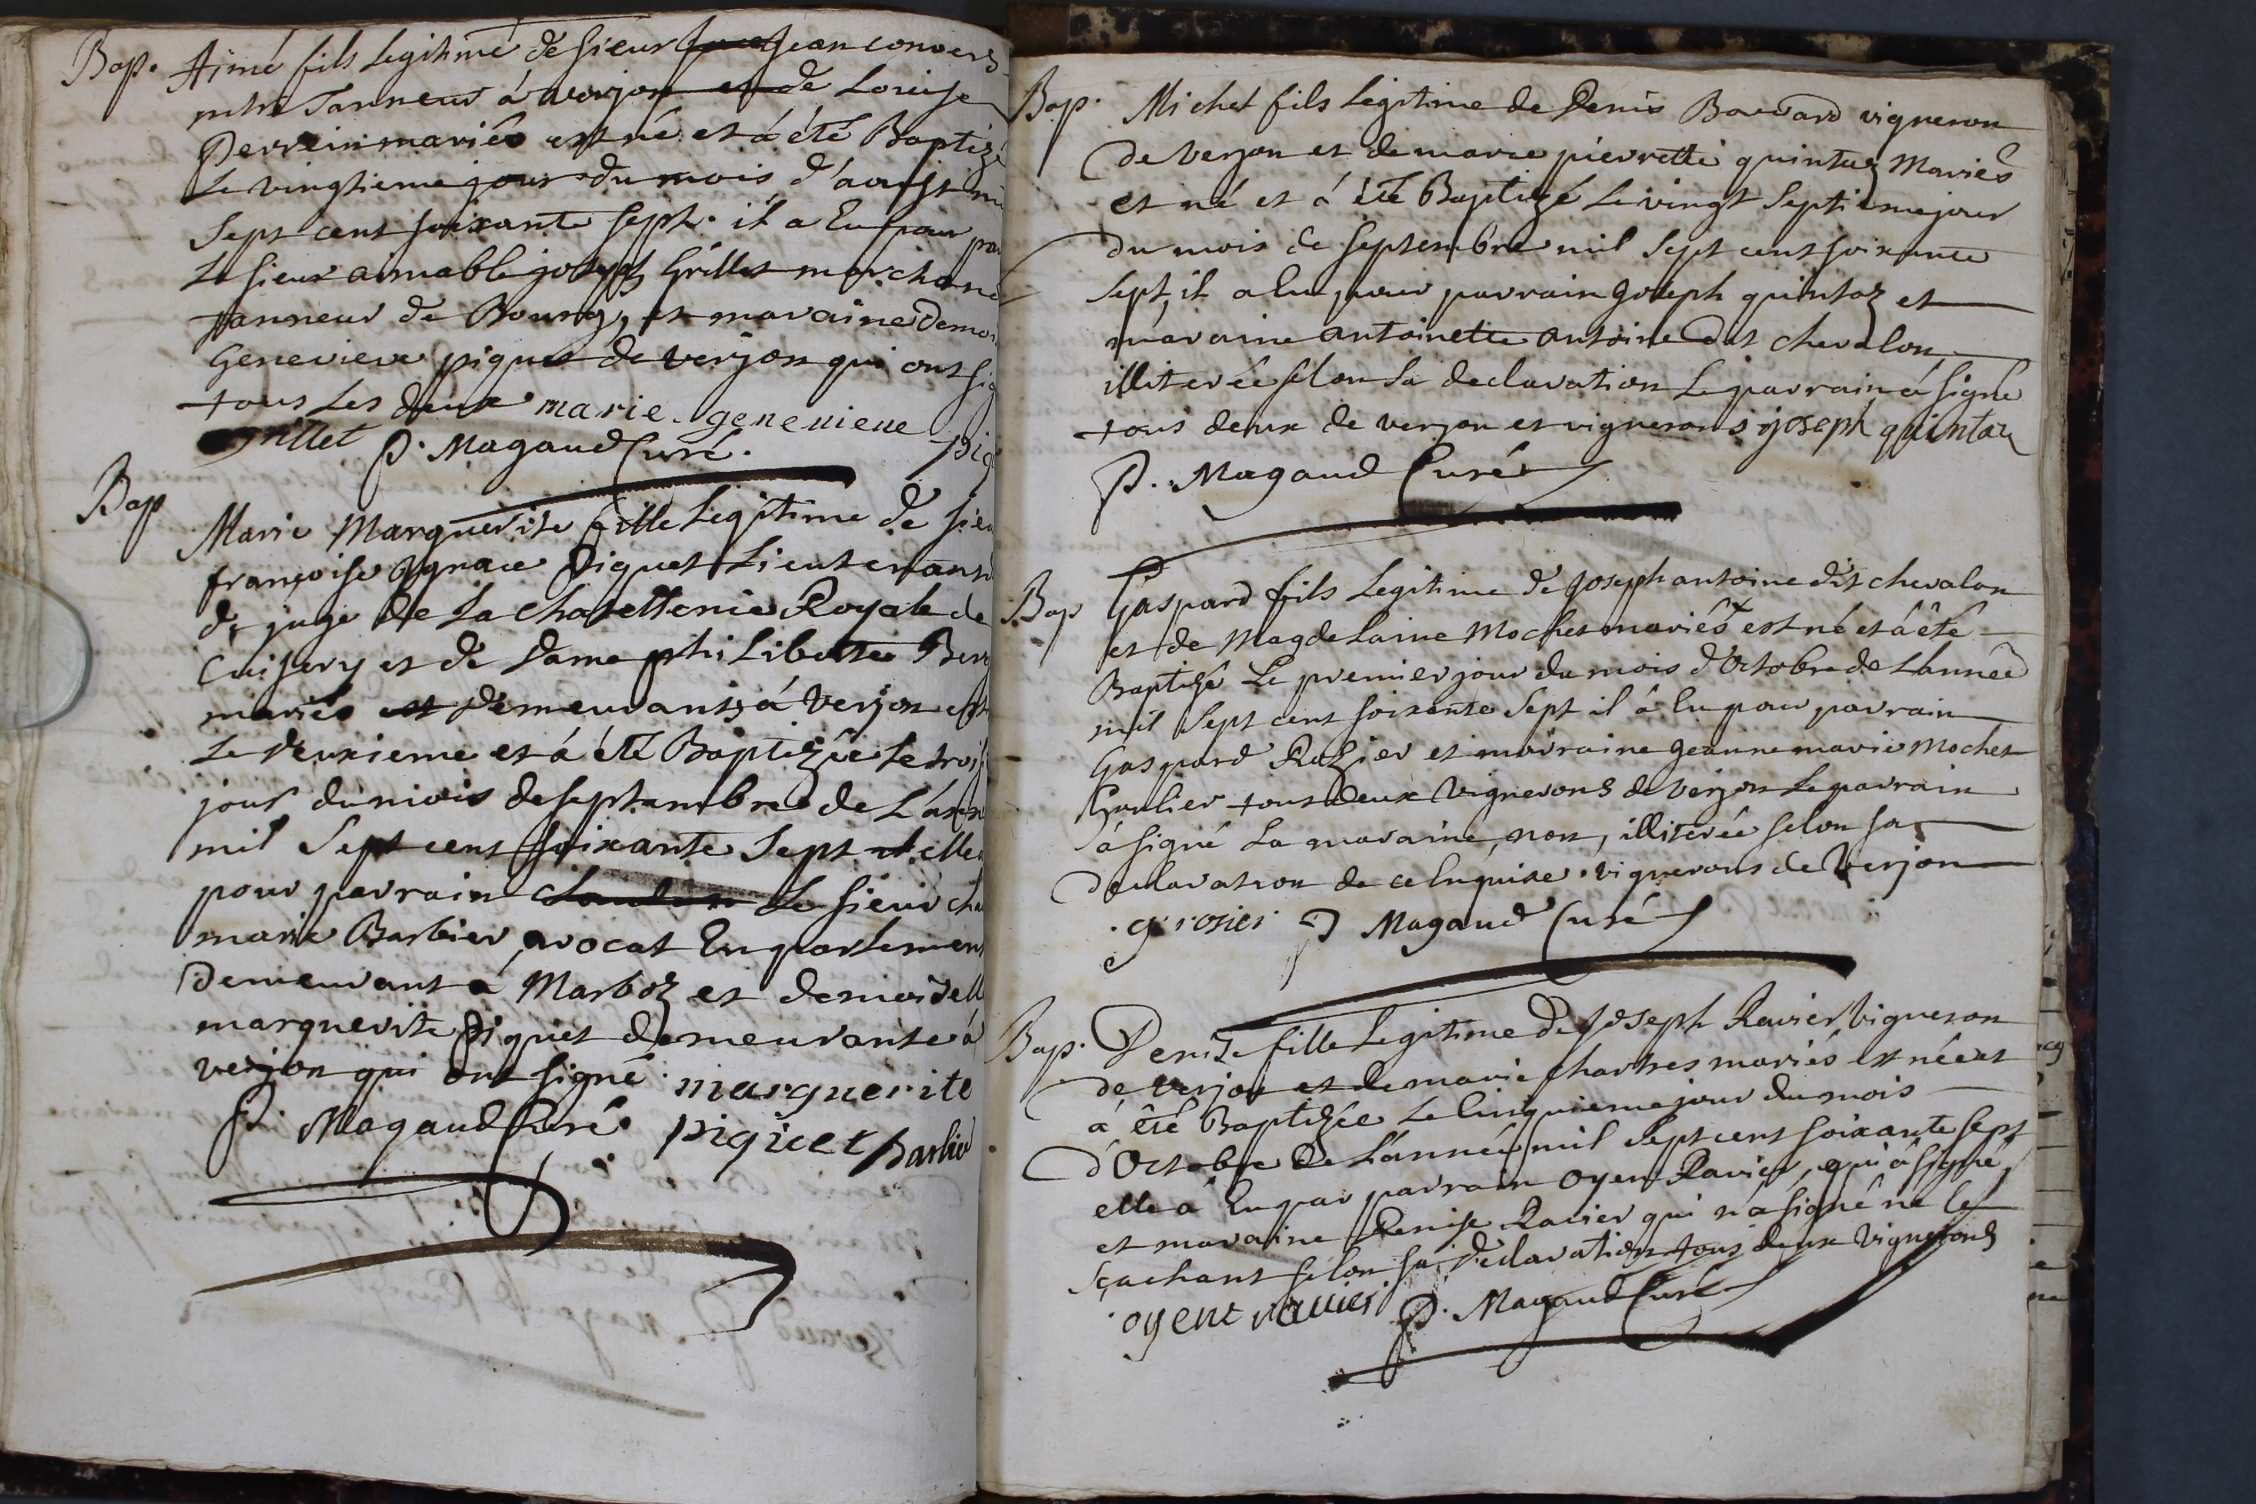 Bap. Aimé fils legitime de sieur Jean convers
mtre Tanneur á verjon et de Louise
Perrein mariés est né et á été Baptizé
Le vingtieme jour du mois d'aoust mi
Sept cent soixante Sept. il a Eu pour par
Le sieur aimable joseph Grillet marchand
tanneur de Bourg, et maraine demoi
Genevieve piquet de verjon qui ont sig
tous Les deux marie genevieve
Grillet P. Magaud Curé. piq
Bap Marie Marguerite fille Legitime de sieu
françoise Ignace Piquet Lieutenant
de juge de La chatellenie Royale de
Cuisery et de dame philiberte Ber
mariés et demeurants á verjon est
Le deuxieme et á été Baptizée le trois
jour du mois de septembre de L'ann
mil Sept cent soixante Sept elle
pour parrain Le sieur cha
marie Barbier, avocat En parlement
demeurant á Marboz et demoiselle
marguerite Piquet demeurante á
verjon qui ont signé marguerite
P. Magaud Curé. piquet Barbier
Bap. Michel fils Legitime de Denis Bouvard vigneron
de Verjon et de marie pierrette quintaz Mariés
est né et á été Baptizé Le vingt Septieme jour
du mois de Septembre mil Sept cent soixante
Sept, il a Eu pour parrain joseph quintaz et
maraine antoinette antoine dit chevalon
illiterée selon sa declaration Le parrain á signé
tous deux de verjon et vignerons joseph quintaz
P. Magaud Curé
Bap Gaspard fils Legitime de joseph antoine dit chevalon
et de Magdelaine Mochet mariés est né et á été
Baptizé Le premier jour du mois d'Octobre de L'année
mil Sept cent soixante Sept il á Eu pour parrain
Gaspard Rozier et marraine jeanne marie Mochet
tous deux vignerons de verjon Le parrain
á signé La maraine, non, illiterée selon sa
declaration de ce Enquise. vignerons de Verjon
g rosier P Magaud Curé
Bap. Denize fille Legitime de joseph Ravier vigneron
de verjon et de marie chartres mariés est née et
á été Baptizée Le Cinquieme jour du mois
d'Octobre de L'année mil Sept cent soixante sept
elle á Eu par parrain oyen Ravier, qui á signé
et maraine Denise Ravier qui n'á signé ne le
sçachant selon sa declaration tous deux vignerons
oyent ravier P. Magaud Curé